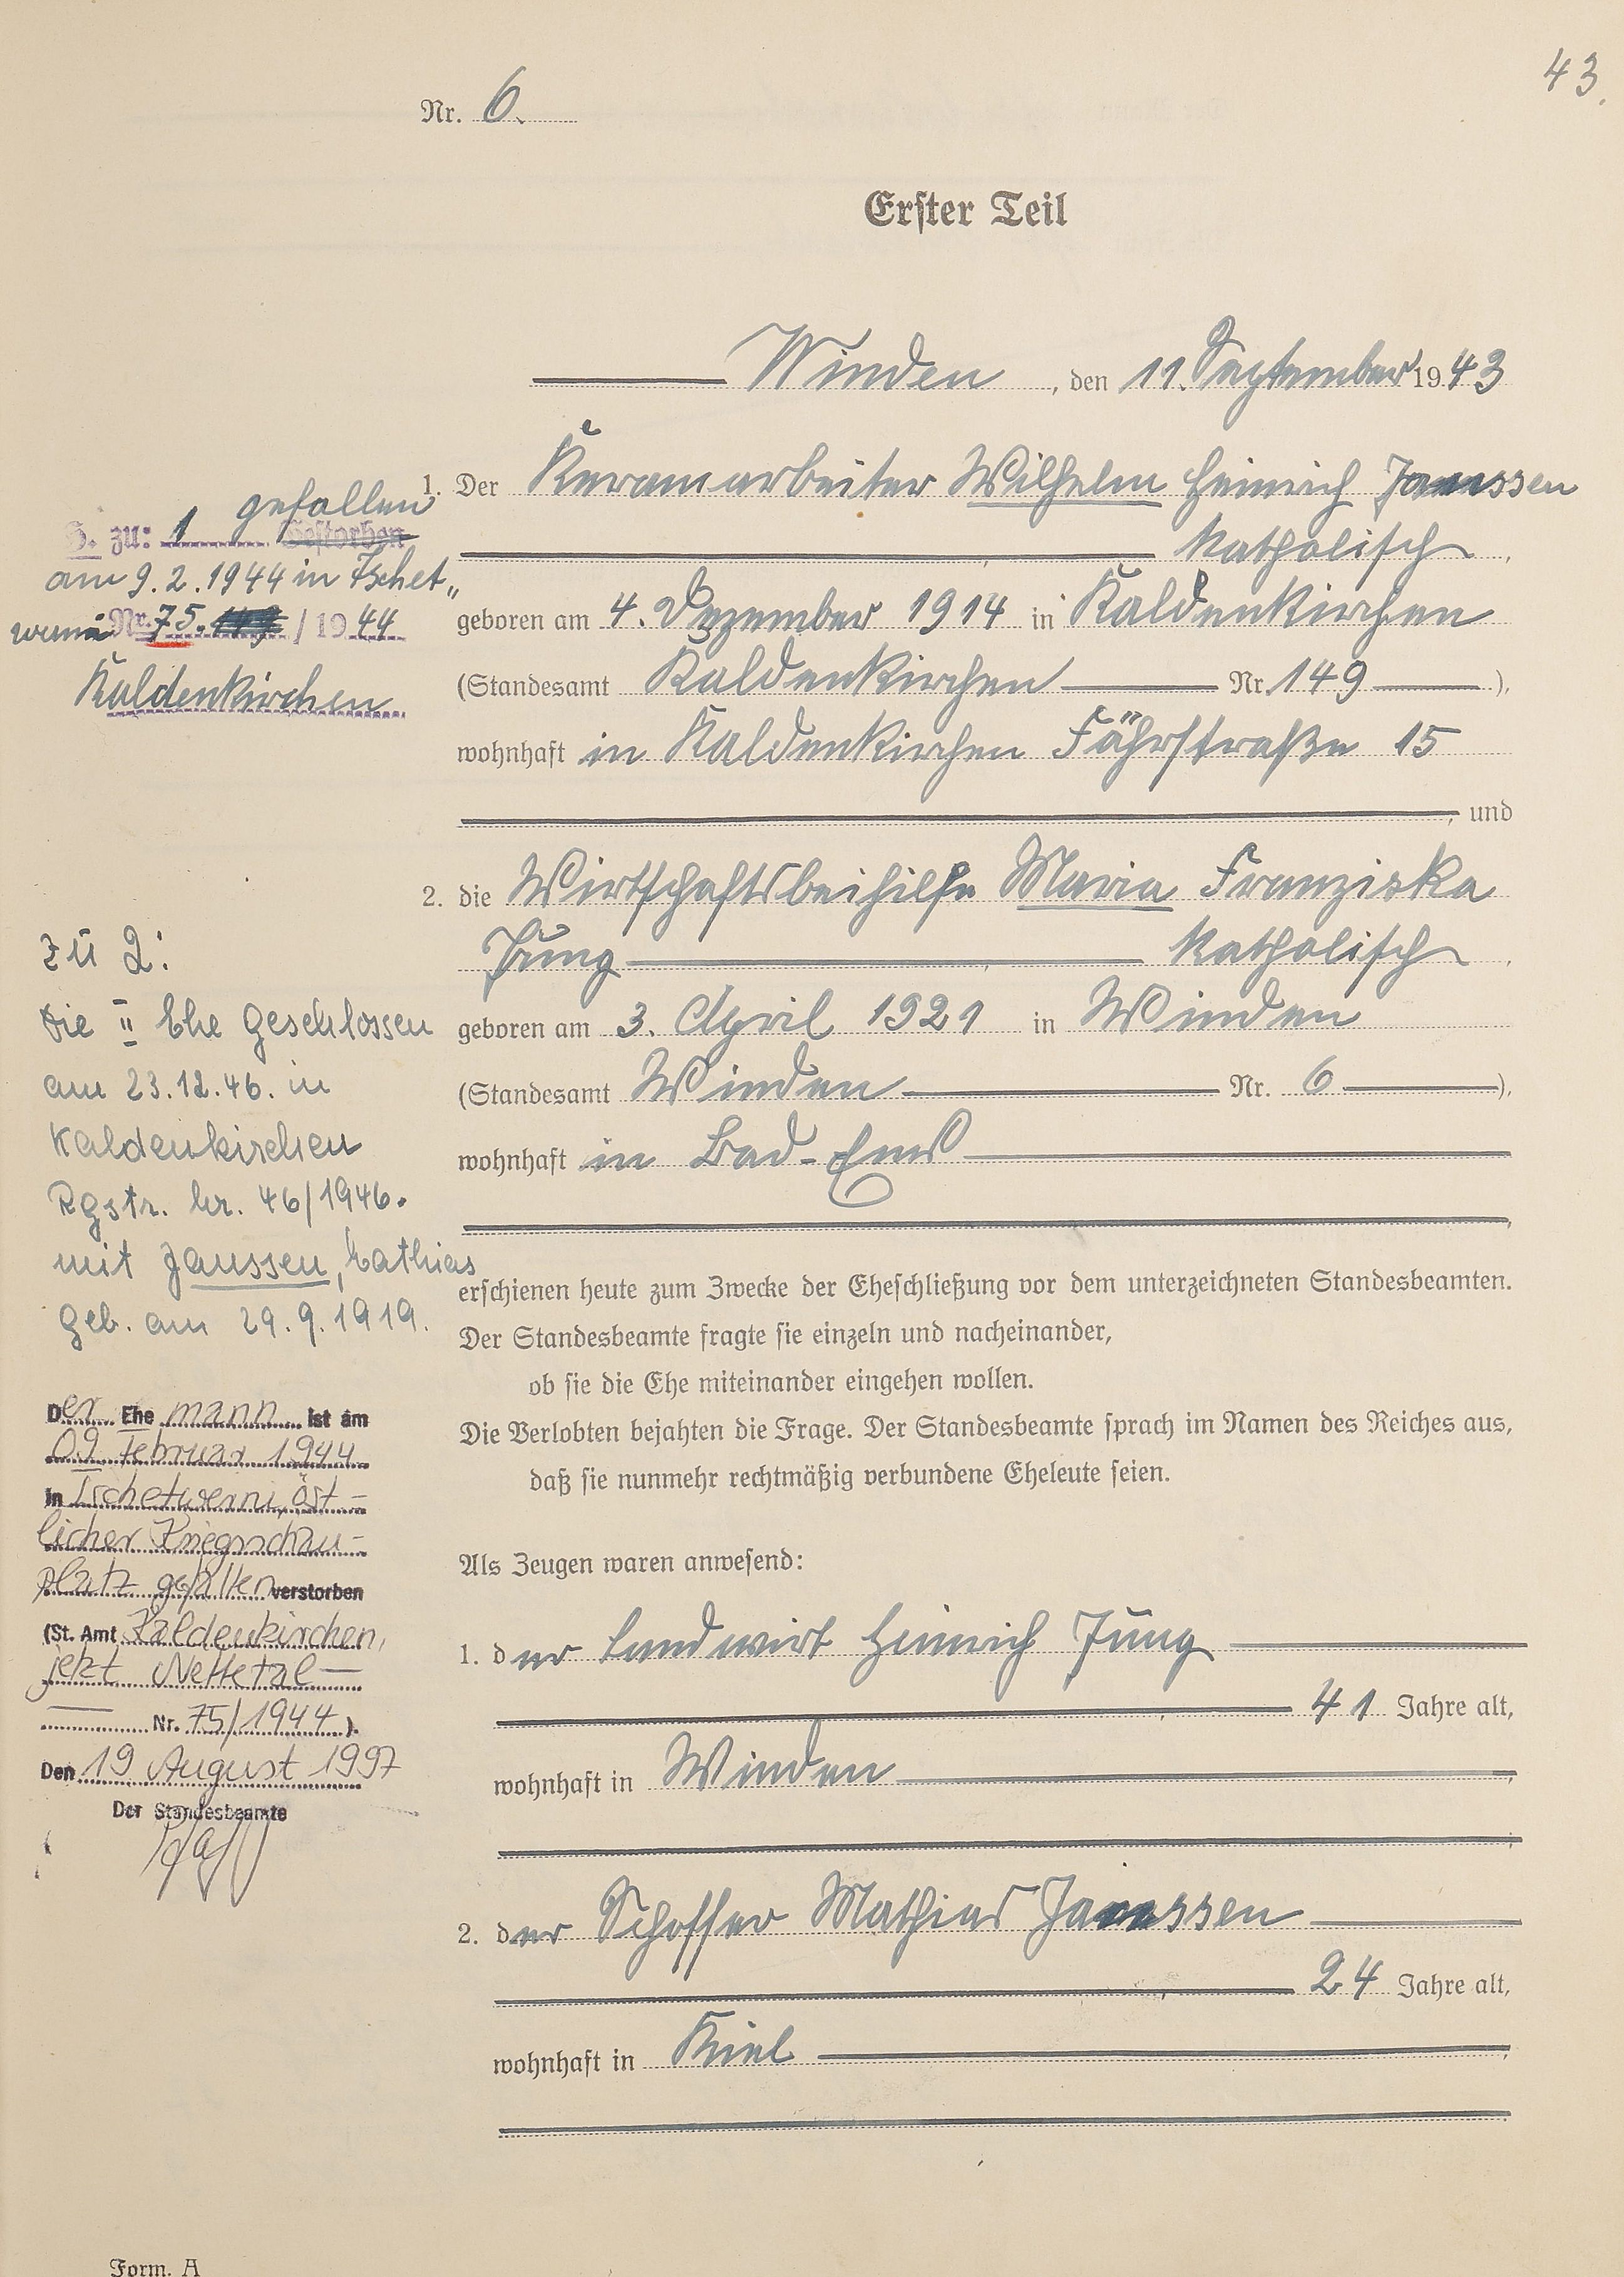 43.
Nr. 6.
Erster Teil
Winden, den 11. September 1943
1. Der Keramarbeiter Wilhelm Heinrich Janssen
katholisch,
geboren am 4. Dezember 1914 in Kaldenkirchen
(Standesamt Kaldenkirchen Nr. 149),
wohnhaft in Kaldenkirchen Fährstraße 15
, und
2. die Wirtschaftsbeihilfe Maria Franziska
Jung katholisch,
geboren am 3. April 1921 in Winden
(Standesamt Winden Nr. 6),
wohnhaft in Bad-Ems
,
erschienen heute zum Zwecke der Eheschließung vor dem unterzeichneten Standesbeamten.
Der Standesbeamte fragte sie einzeln und nacheinander,
ob sie die Ehe miteinander eingehen wollen.
Die Verlobten bejahten die Frage. Der Standesbeamte sprach im Namen des Reiches aus,
daß sie nunmehr rechtmäßig verbundene Eheleute seien.
Als Zeugen waren anwesend:
1. der Landwirt Heinrich Jung
41 Jahre alt,
wohnhaft in Winden,
2. der Schoffer Mathias Janssen
24 Jahre alt,
wohnhaft in Kiel,
gefallen
H. zu: 1 Gestorben
am 9.2.1944 in Tschet„
werni Nr. 75. /1944
Kaldenkirchen
zu 2:
Die II Ehe geschlossen
am 23.12.46. in
Kaldenkirchen
Rgstr. Nr. 46/1946.
mit Janssen, Mathias
geb. am 29.9.1919.
Der Ehe mann ist am
09. Februar 1944
in Tschetwerni, öst-
licher Kriegsschau-
platz gefallen verstorben
(St. Amt Kaldenkirchen,
jetzt Nettetal
Nr. 75/1944).
Den 19 August 1997
Der Standesbeamte
Form. A